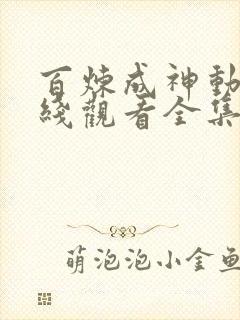 百煉成神動
綫觀看全集
萌泡泡小金魚